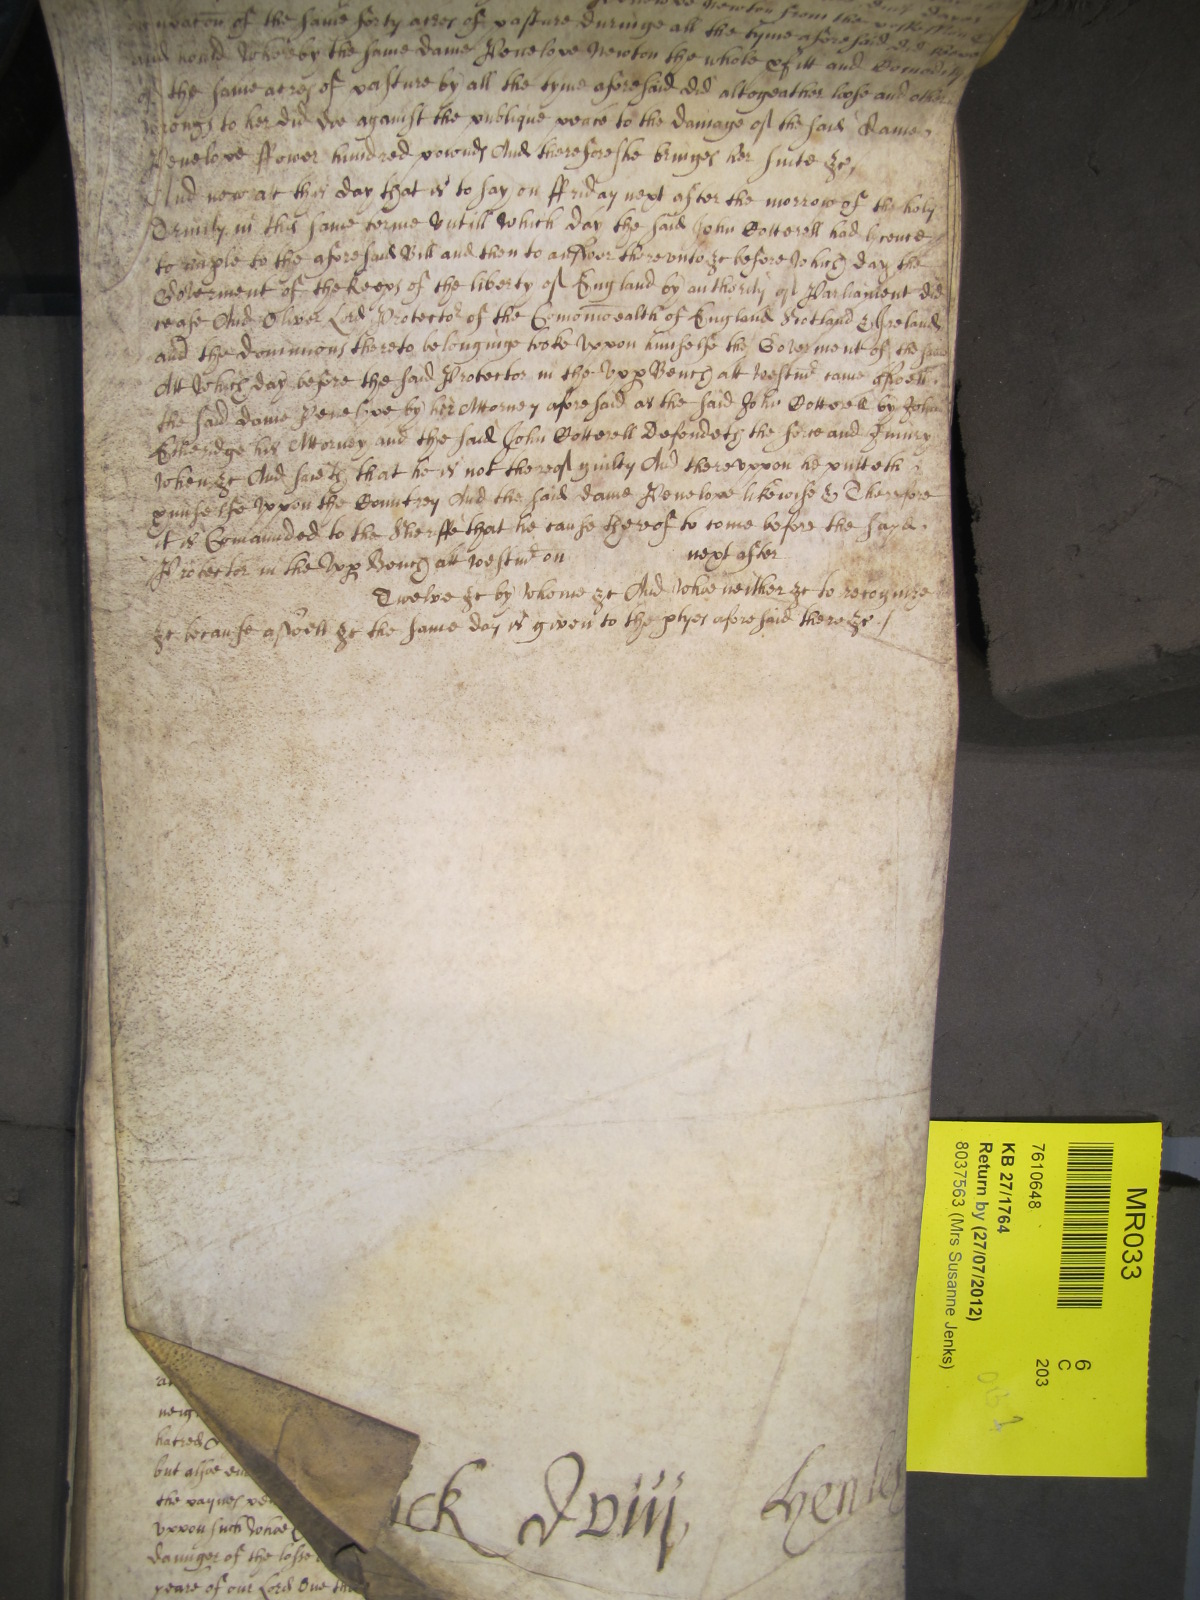 of the same forty acres of pasture duringe all the tyme aforesaid did
and would Whereby the same dame Penelope Newton the whole pfitt and Comodity
of the same acres of pasture by all the tyme aforesaid did altogeather loose and other
wrongs to her did doe against the publique peace to the damage of the said Dame
Penelope ffower hundred pounds And therefore she bringes her suite &c
And now at this day that is to say on ffriday next after the morrow of the holy
Trinity in this same terme Untill which day the said John Cotterell had lycence
to imple to the aforesaid Bill and then to answer thereunto &c before which day the
Goverment of the Keeps of the liberty of England by authority of Parliament did
cease And Oliver Lord Protector of the Comonwealth of England Scotland & Ireland
and the dominions thereto belonginge tooke uppon himselfe the Goverment of the same
Att which day before the said Protector in the Upp Bench att Westmr came aswell
the said dame Penelope by her Attorney aforesaid as the said John Cotterell by John
Etheridge his Attorney and the said John Cotterell Defendeth the force and Iniury
when &c And saith that he is not thereof guilty And thereuppon he putteth
himselfe Uppon the Countrey And the said dame Penelope likewise & Therefore
it is Comaunded to the Sheriffe that he cause thereof to come before the said
Protector in the Upp Bench att Westmr on next after
Twelve &c by whome &c And whoe neither &c to recognize
&c because aswell &c the same day is given to the ptyes aforesaid there &c /
MR033
6
C
203
7610648
KB 27/1764
Return by (27/07/2012)
8037563 (Mrs Susanne Jenks)
hatred
but alsoe
the paynes
uppon such whoe
daunger of the losse
yeare of our Lord One
Henley